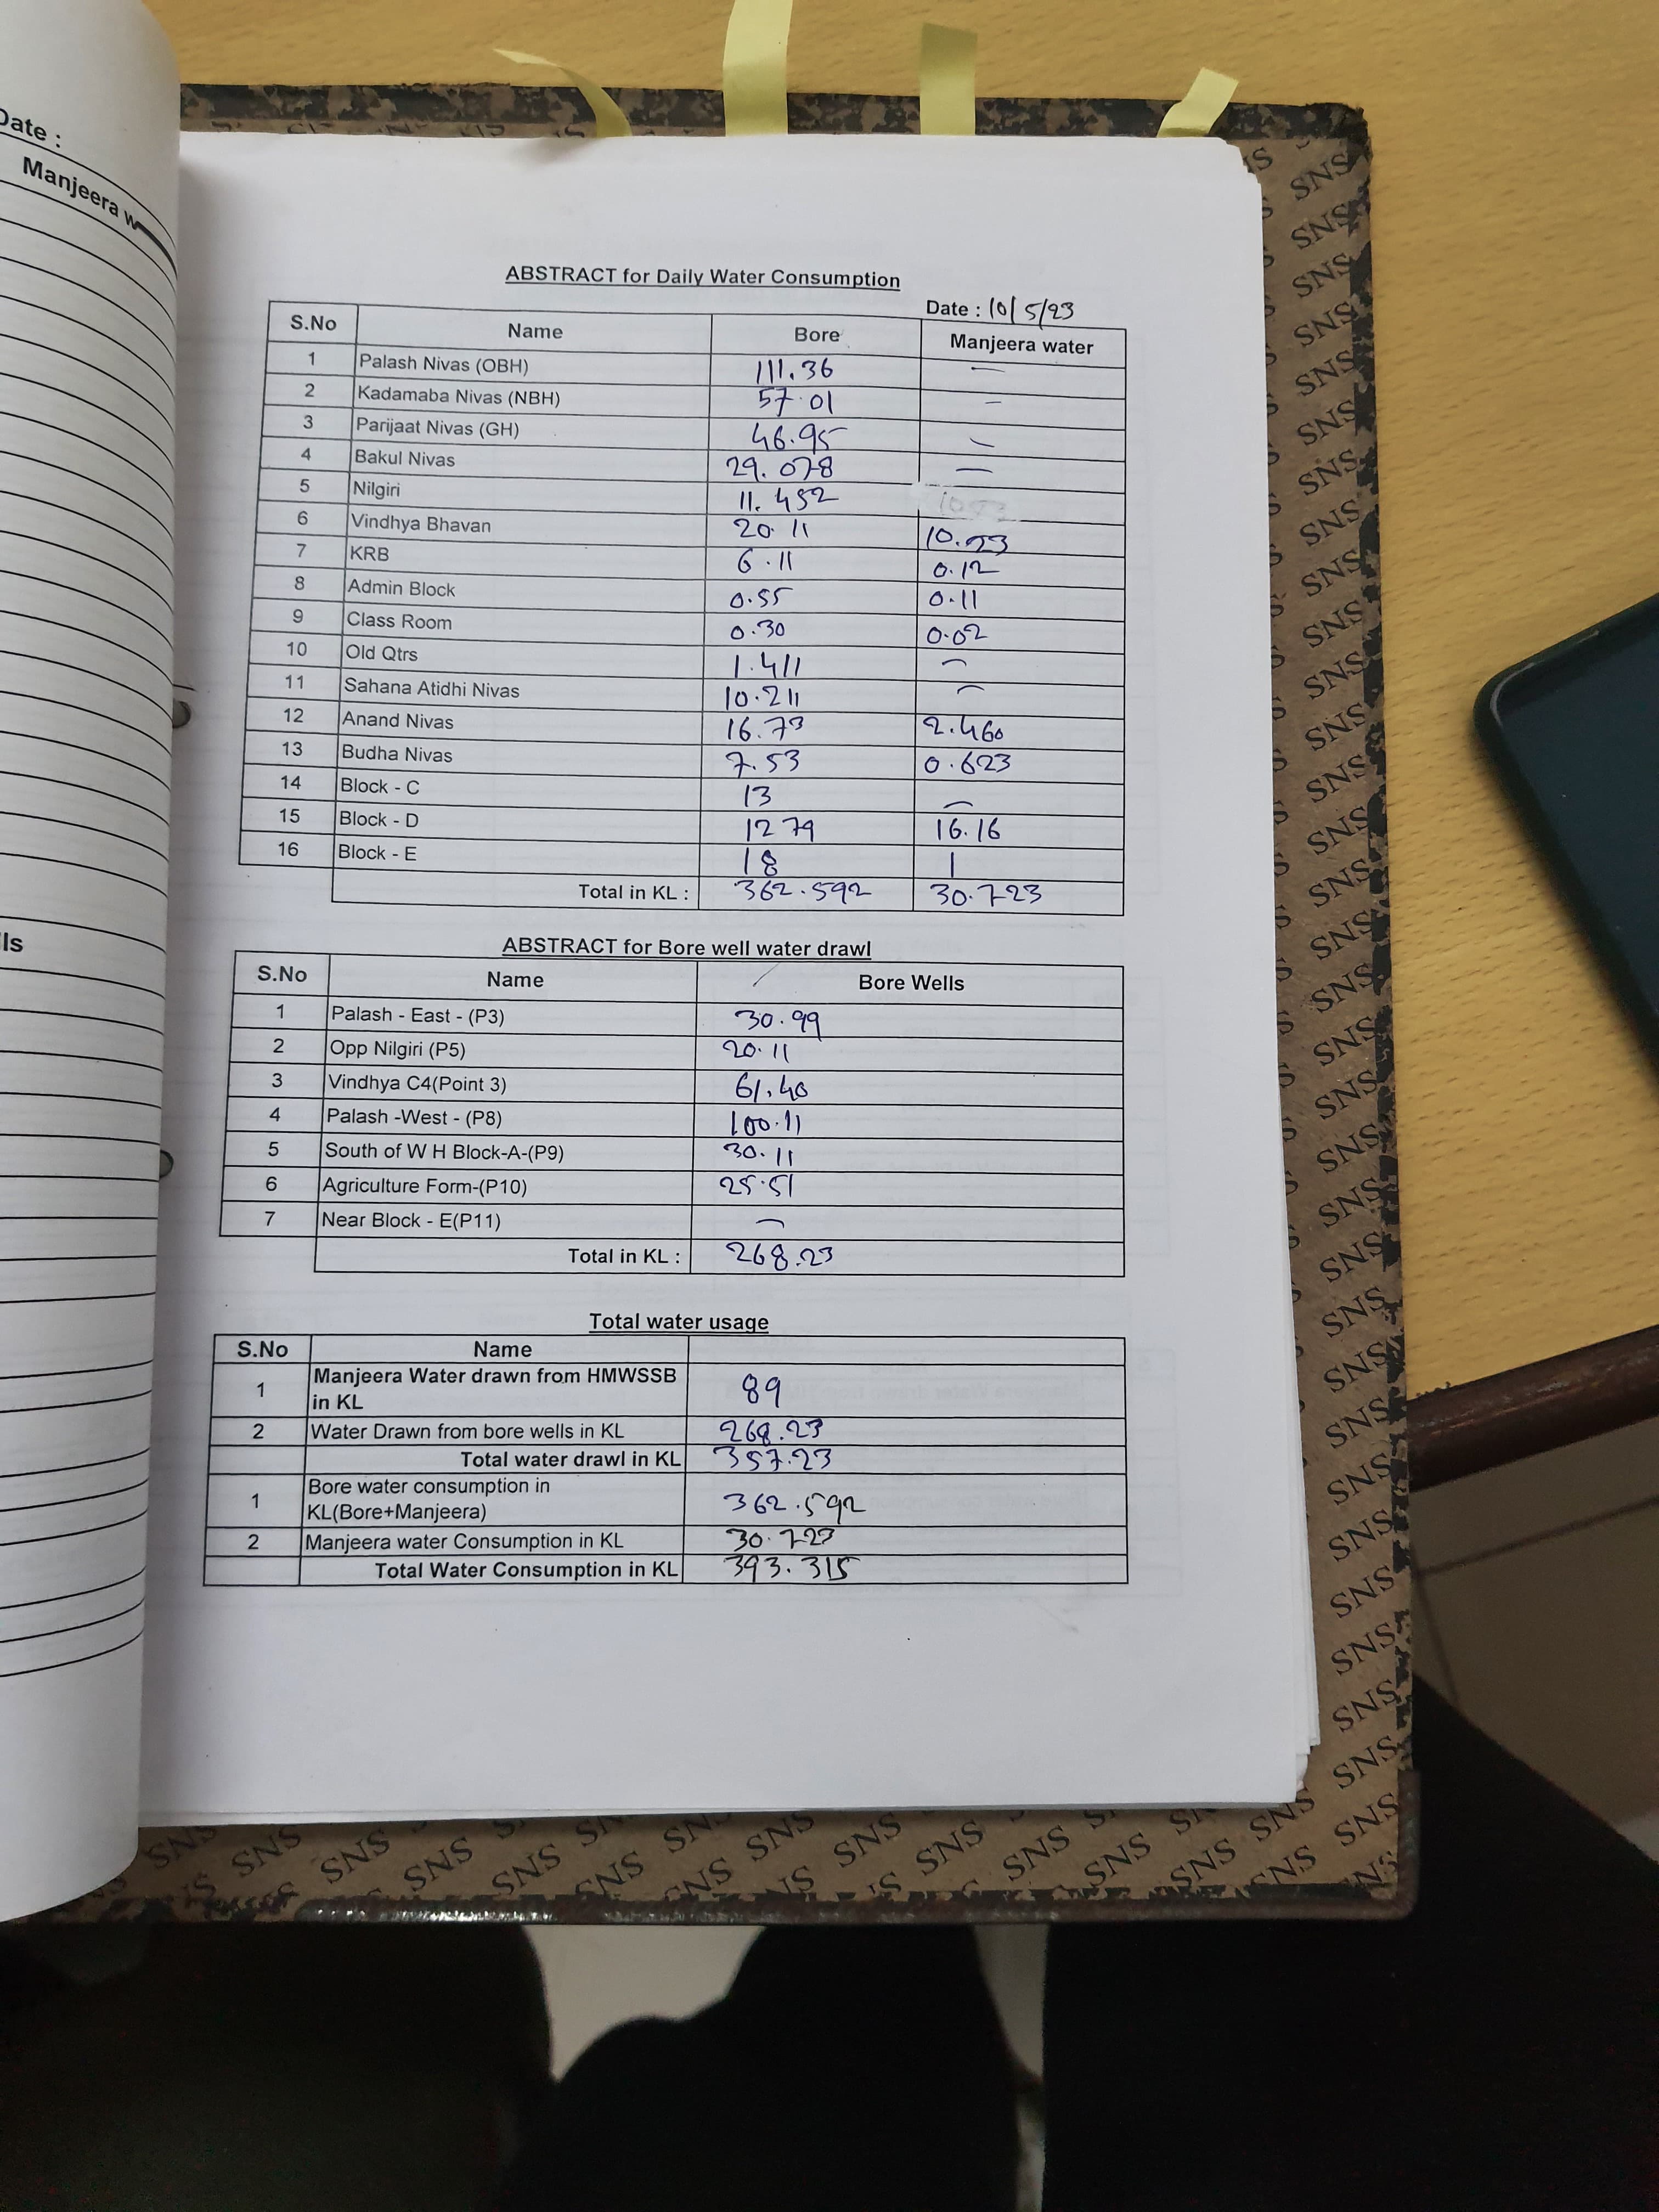 Date :
Manjeera w
lls
ABSTRACT for Daily Water Consumption
Date : 10/5/23
S.No Name Bore Manjeera water
1 Palash Nivas (OBH) 111.36 —
2 Kadamaba Nivas (NBH) 57.01 —
3 Parijaat Nivas (GH) 46.95 —
4 Bakul Nivas 29.078 —
5 Nilgiri 11.452
6 Vindhya Bhavan 20.11 10.23
7 KRB 6.11 0.12
8 Admin Block 0.55 0.11
9 Class Room 0.30 0.02
10 Old Qtrs 1.411 —
11 Sahana Atidhi Nivas 10.211 —
12 Anand Nivas 16.73 2.460
13 Budha Nivas 7.53 0.623
14 Block - C 13 —
15 Block - D 12 79 16.16
16 Block - E 18 1
Total in KL : 362.592 30.723
ABSTRACT for Bore well water drawl
S.No Name Bore Wells
1 Palash - East - (P3) 30.99
2 Opp Nilgiri (P5) 20.11
3 Vindhya C4(Point 3) 61.40
4 Palash -West - (P8) 100.11
5 South of W H Block-A-(P9) 30.11
6 Agriculture Form-(P10) 25.51
7 Near Block - E(P11) —
Total in KL : 268.23
Total water usage
S.No Name
1 Manjeera Water drawn from HMWSSB
in KL 89
2 Water Drawn from bore wells in KL 268.23
Total water drawl in KL 357.23
1 Bore water consumption in
KL(Bore+Manjeera) 362.592
2 Manjeera water Consumption in KL 30.723
Total Water Consumption in KL 393.315